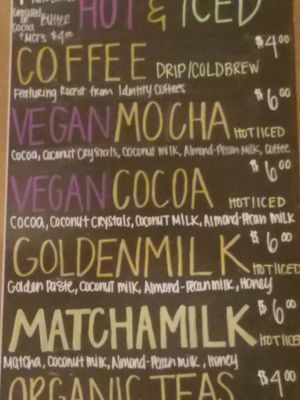 HOT & ICED
COCOA BUTTER
+ MCTS $4.00
COFFEE DRIP/COLDBREW $4.00
Featuring Roast from Identity Coffees
VEGAN MOCHA HOT/ICED $6.00
Cocoa, Coconut Crystals, Coconut milk, Almond-Pecan Milk, Coffee
VEGAN COCOA HOT/ICED $6.00
Cocoa, Coconut Crystals, Coconut Milk, Almond-Pecan milk
GOLDENMILK HOT/ICED $6.00
Golden Paste, Coconut milk, Almond-Pecan milk, Honey
MATCHAMILK HOT/ICED $6.00
Matcha, Coconut milk, Almond-Pecan milk, Honey
ORGANIC TEAS $4.00